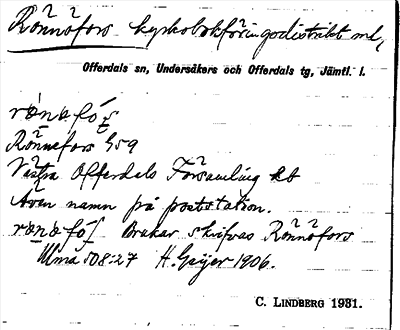 Rönnöfors kyrkobokföringsdistrikt
Offerdals sn, Undersåkers och Offerdals tg, Jämtl. l.
Rönnefors G59
Västra Offerdals Församling
Även namn på poststation.
Brukar skrifvas Rönnöfors
Ulma 508:27 H. Geijer 1906.
C. LINDBERG 1931.